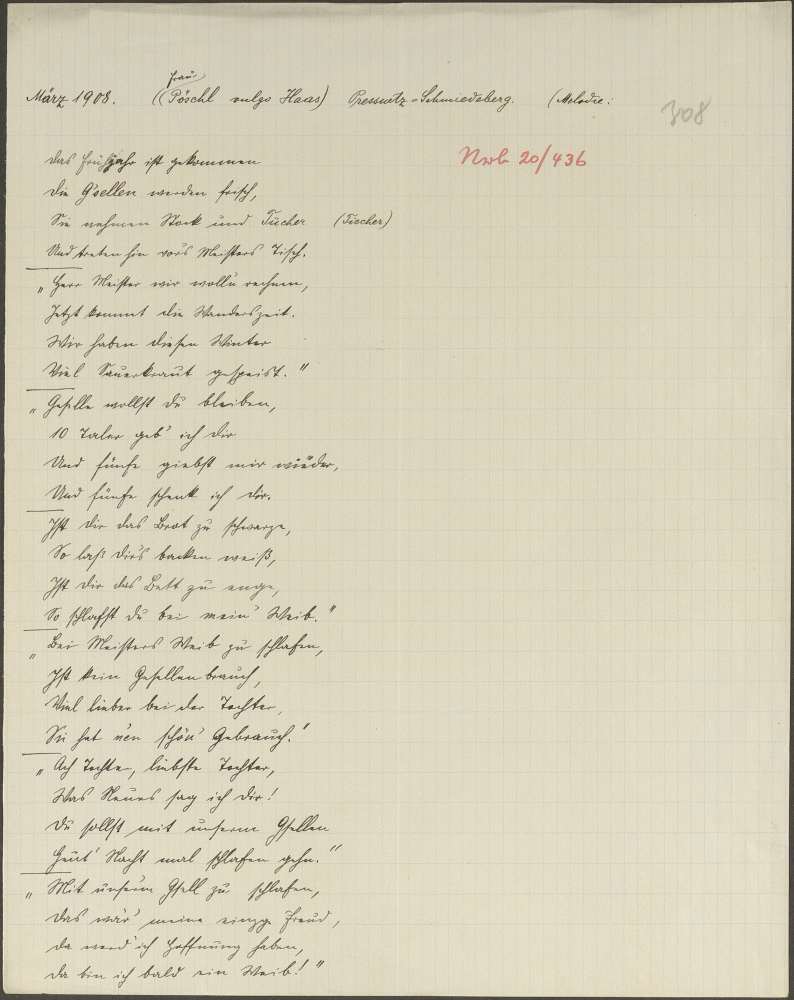 Frau
März 1908. ((Pöschl vulgo Haas) Pressnitz-Schmiedeberg. (Melodie:
308
Das Frühjahr ist gekommen
20/436
Die G'sellen werden frisch,
Sie nehmen Stock und Tücher (Tiecher)
Und treten hin vors Meisters Tisch.
„Herr Meister wir woll'n rechnen,
Jetzt kommt die Wanderszeit.
Wir haben diesen Winter
Viel Sauerkraut gespeist."
„Geselle wollst du bleiben,
10 Taler geb' ich dir
Und fünfe giebst mir wieder,
Und fünfe schenk ich dir.
Ist dir das Brot zu schwarze,
So laß dir's backen weiß,
Ist dir das Bett zu enge,
So schlafst du bei mein' Weib."
„Bei Meisters Weib zu schlafen,
Ist kein Gesellenbrauch,
Viel lieber bei der Tochter,
Sie hat nen schön' Gebrauch."
„Ach Tochter, liebste Tochter,
Was Neues sag ich dir!
Du sollst mit unserm Gsellen
Heut' Nacht mal schlafen gehn."
„Mit unserm Gsell zu schlafen,
Das wär' meine einzge Freud,
Da werd' ich Hoffnung haben,
Da bin ich bald ein Weib!"